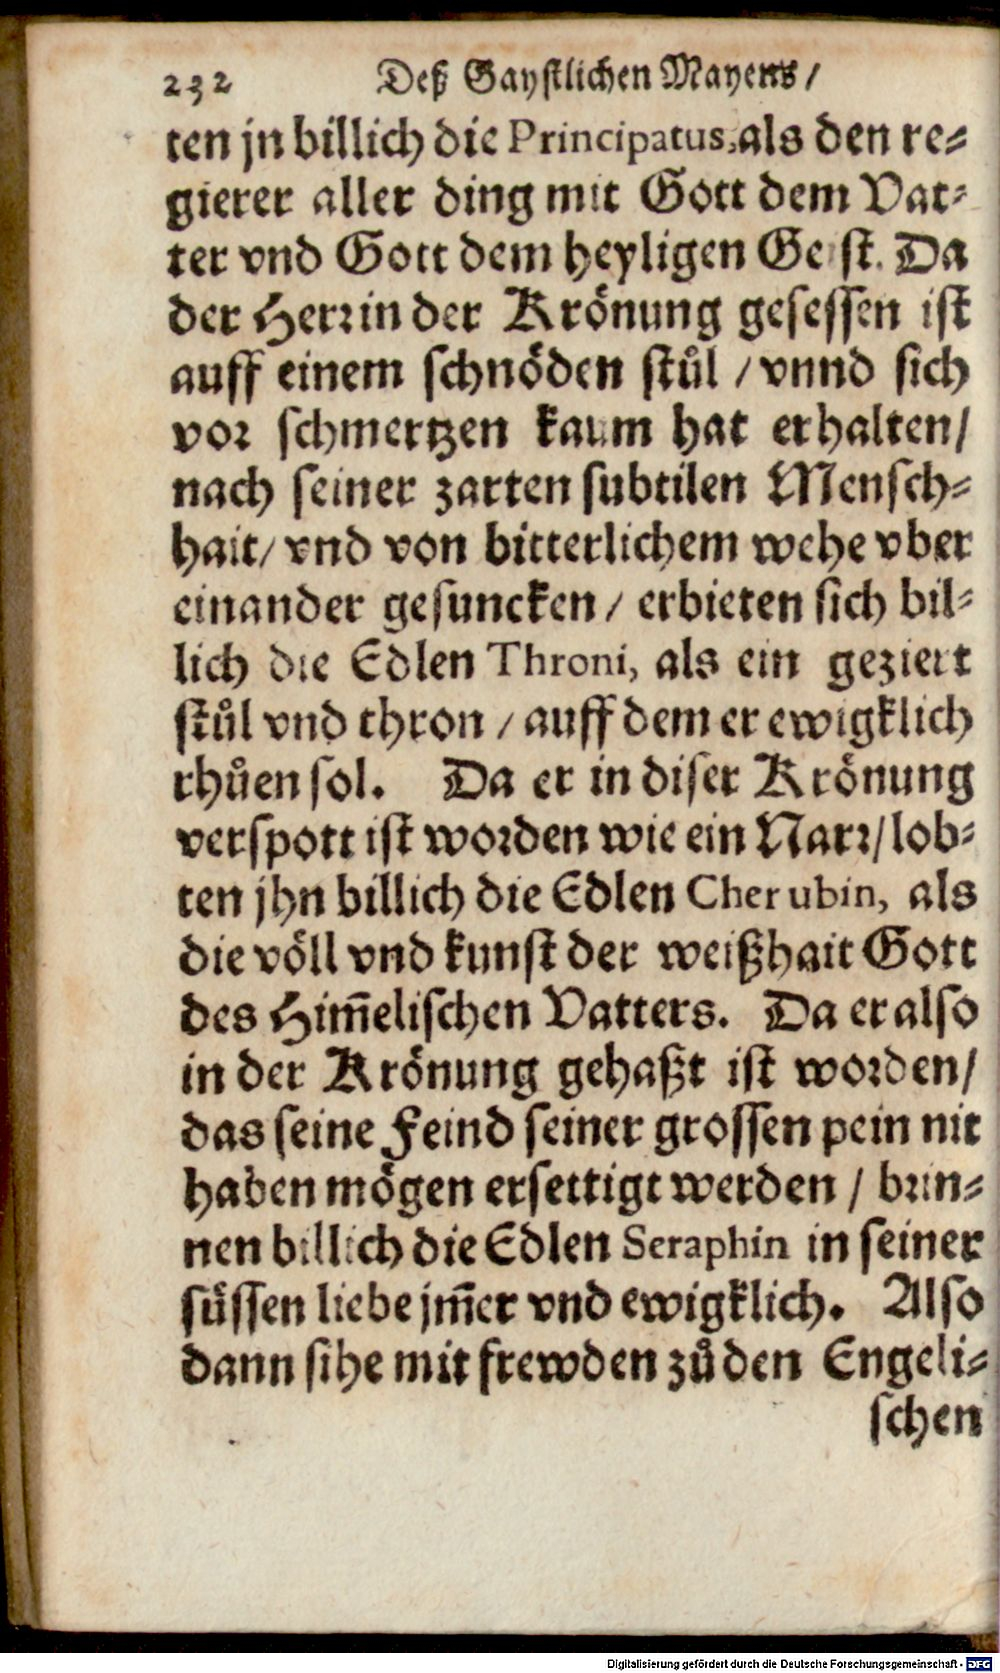 232 Deß Gaystlichen Mayens /
ten jn billich die Principatus, als den re-
gierer aller ding mit Gott dem Vat-
ter vnd Gott dem heyligen Geist. Da
der Herr in der Krönung gesessen ist
auff einem schnöden stůl / vnnd sich
vor schmertzen kaum hat erhalten /
nach seiner zarten subtilen Mensch-
hait / vnd von bitterlichem wehe vber
einander gesuncken / erbieten sich bil-
lich die Edlen Throni, als ein geziert
stůl vnd thron / auff dem er ewigklich
rhůen sol. Da er in diser Krönung
verspott ist worden wie ein Narr / lob-
ten jhn billich die Edlen Cherubin, als
die völl vnd kunst der weißhait Gott
des Him̃elischen Vatters. Da er also
in der Krönung gehaßt ist worden /
das seine Feind seiner grossen pein nit
haben mögen ersettigt werden / brin-
nen billich die Edlen Seraphin in seiner
süssen liebe jm̃er vnd ewigklich. Also
dann sihe mit frewden zů den Engeli-
schen
Digitalisierung gefördert durch die Deutsche Forschungsgemeinschaft - DFG